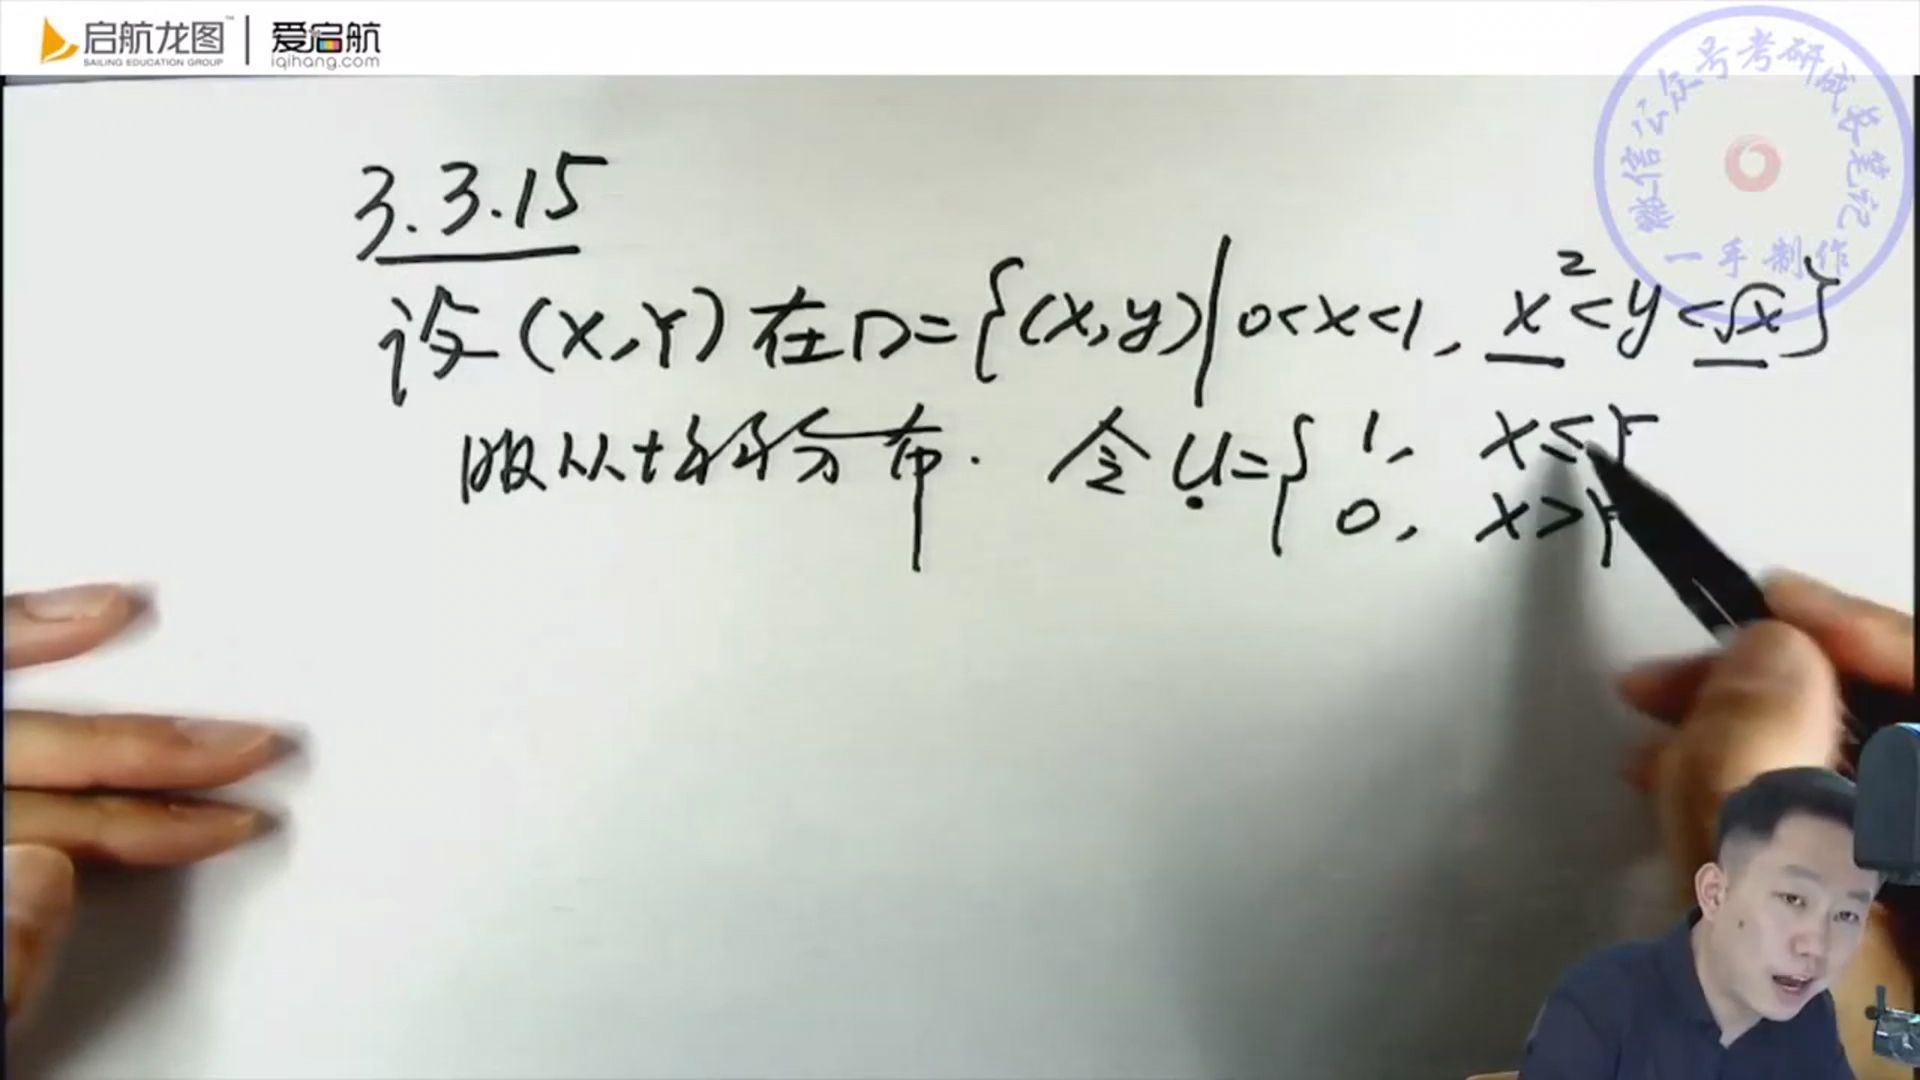 启航龙图 爱启航
SAILING EDUCATION GROUP iqihang.com
微信公众号考研成长笔记
一手制作
3.3.15
设(X,Y)在D={(x,y)|0<x<1, x²<y<√x}
服从均匀分布. 令U={1, X≤Y
0, X>Y